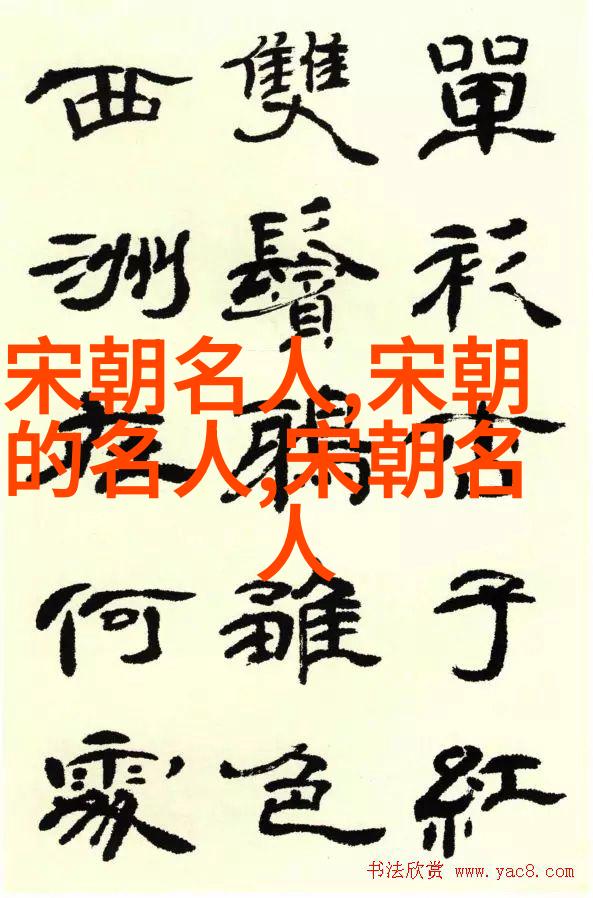 單衫杏子紅
雙鬢鴉雛色
西洲在何處
宋朝名人,宋朝
的名人,宋朝名
人
书法欣赏 www.yac8.com